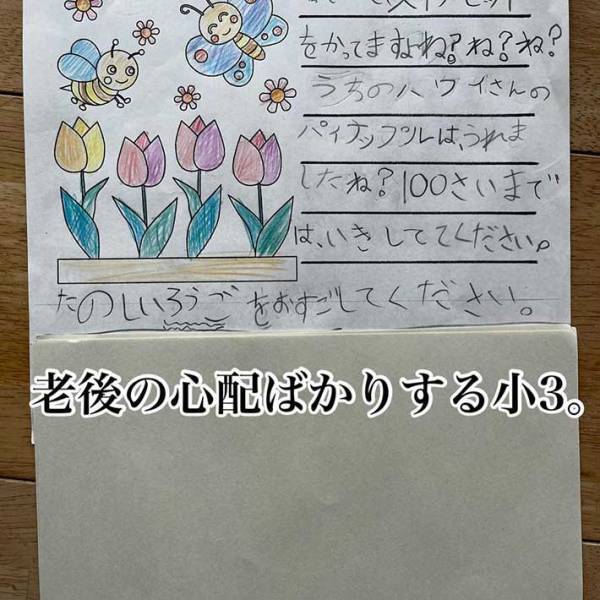 をかってますよね？ね？ね？
うちのハワイさんの
パイナップルは、うれま
したね？100さいまで
は、いきしててください。
たのしいろうごをおすごしてください。
老後の心配ばかりする小3。